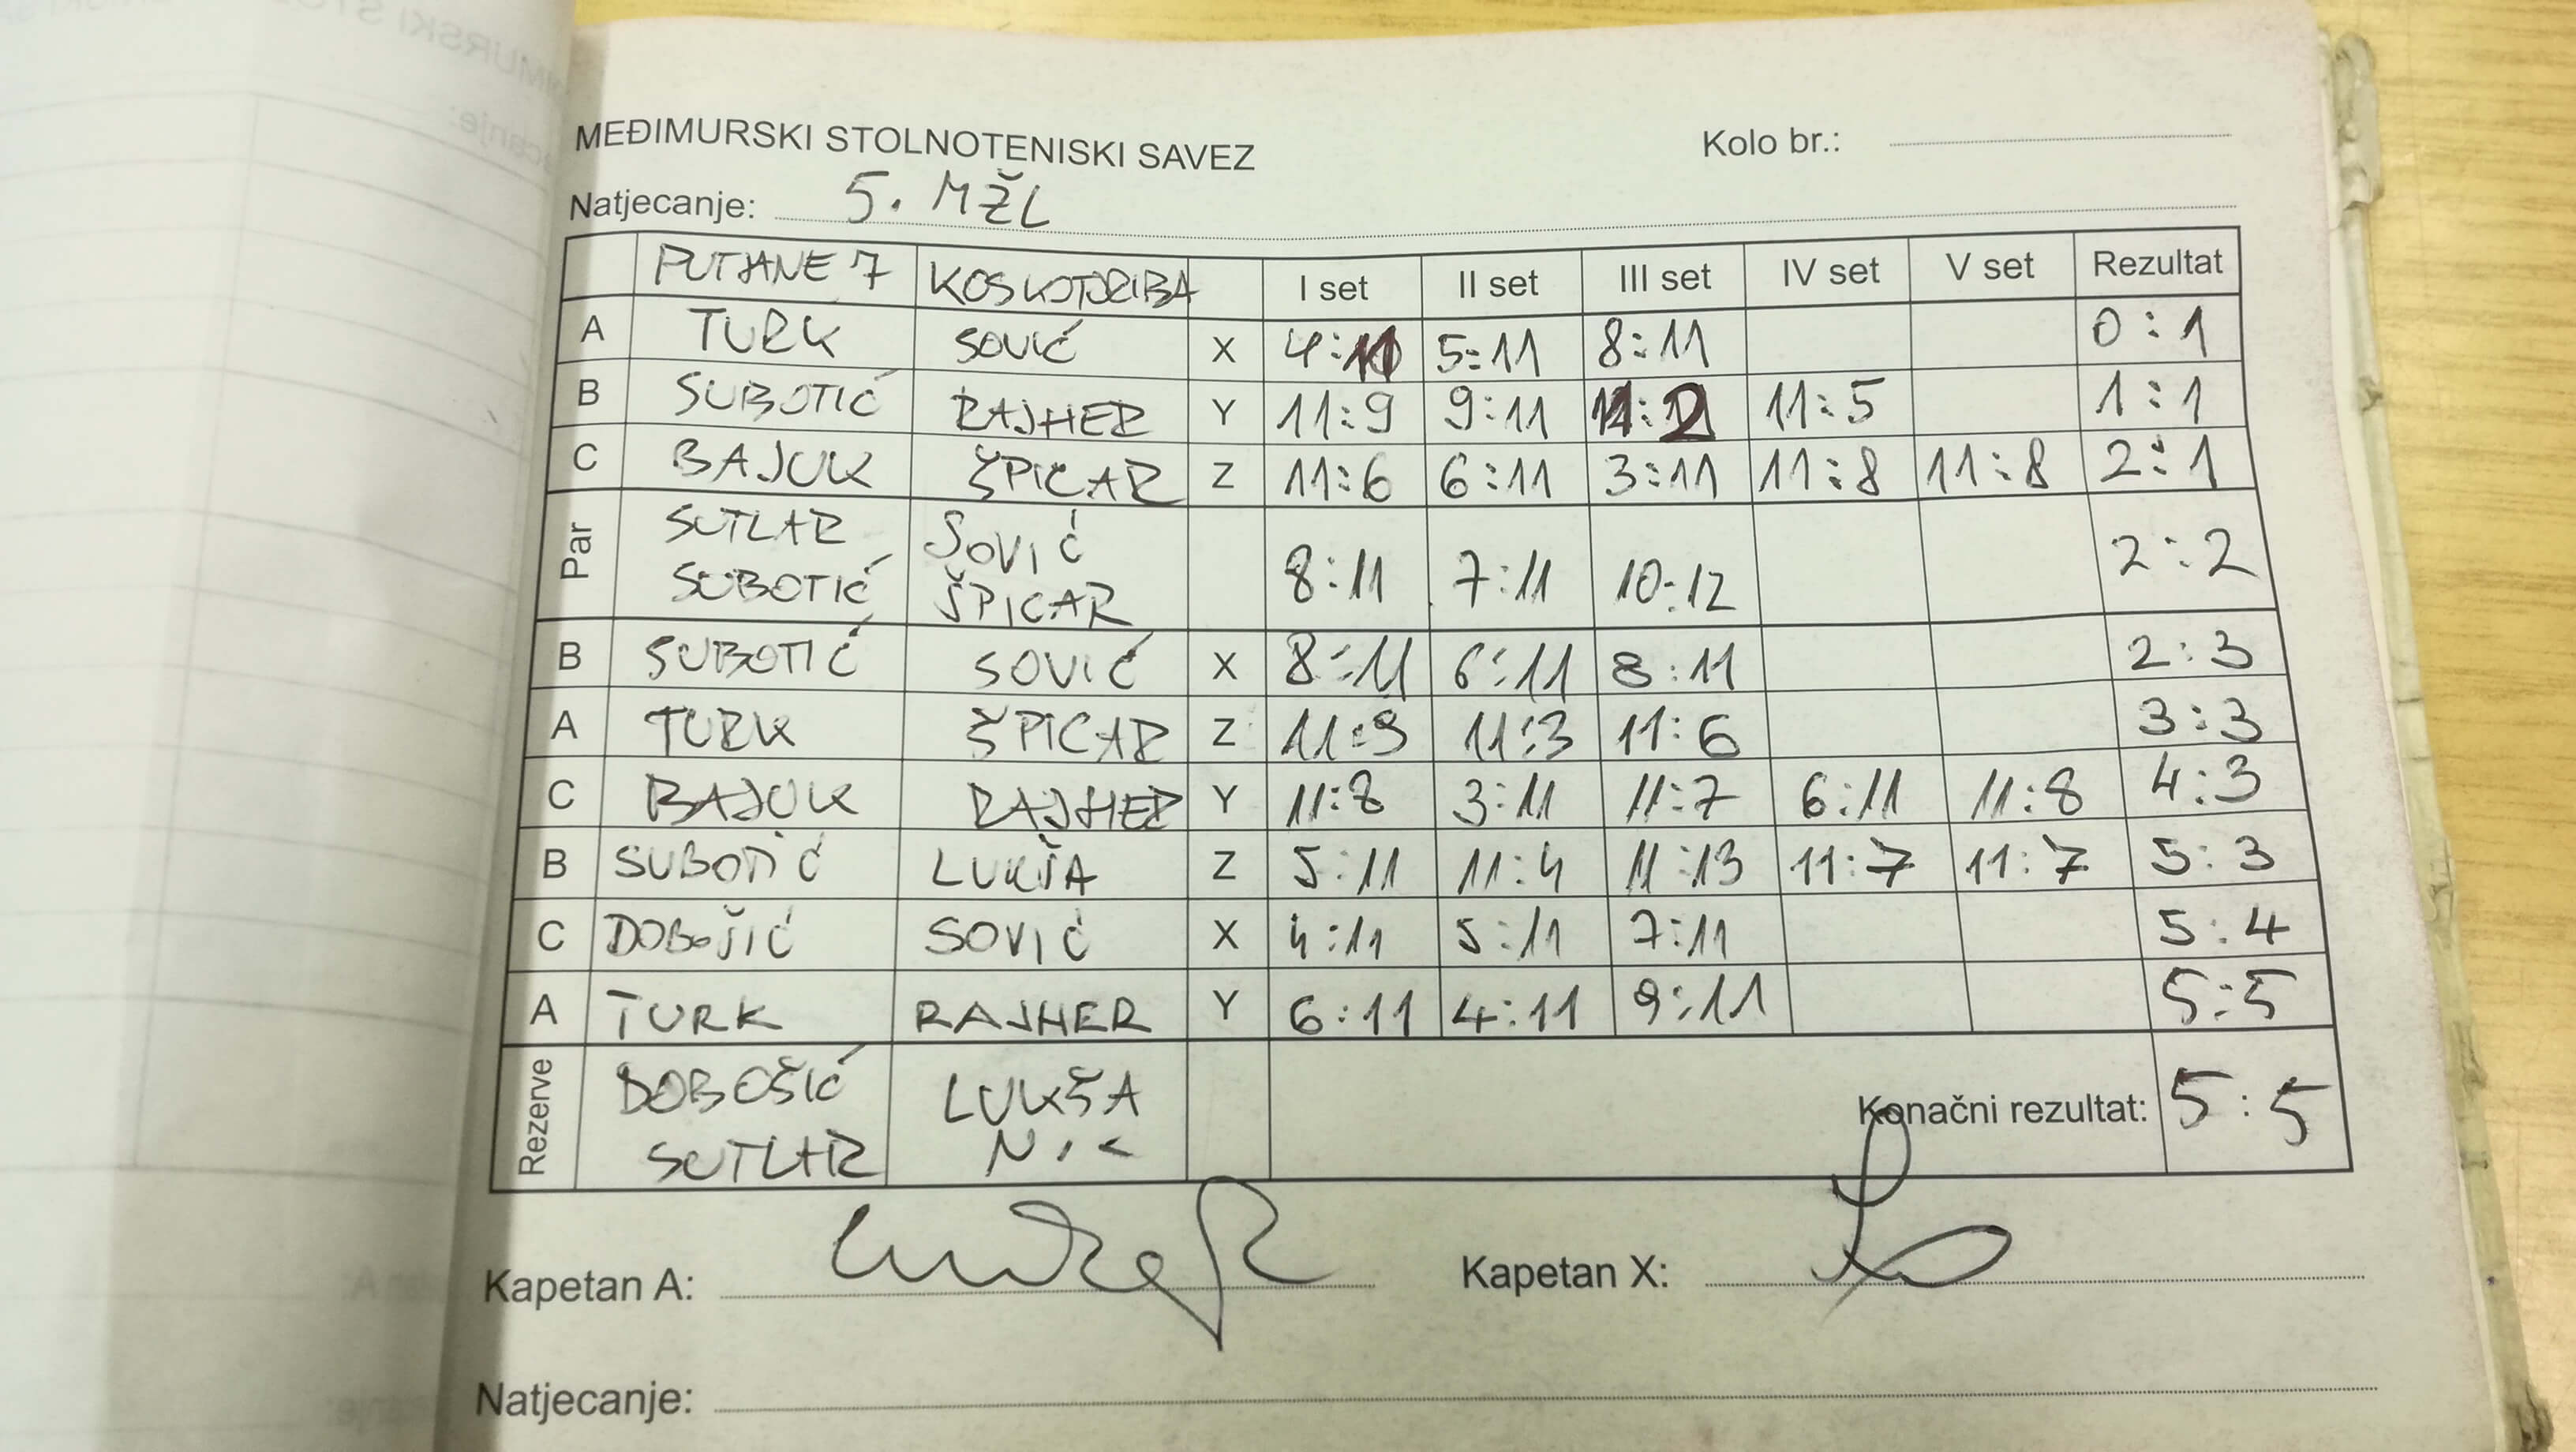 MEĐIMURSKI STOLNOTENISKI SAVEZ Kolo br.:
Natjecanje: 5. MŽL
PUTJANE 7 KOS KOTORIBA I set II set III set IV set V set Rezultat
A TURK SOVIĆ X 4:11 5:11 8:11 0:1
B SUBOTIĆ RAJHER Y 11:9 9:11 11:2 11:5 1:1
C BAJUK ŠPICAR Z 11:6 6:11 3:11 11:8 11:8 2:1
Par SUTLAR SUBOTIĆ SOVIĆ ŠPICAR 8:11 7:11 10:12 2:2
B SUBOTIĆ SOVIĆ X 8:11 6:11 8:11 2:3
A TURK ŠPICAR Z 11:9 11:3 11:6 3:3
C BAJUK RAJHER Y 11:8 3:11 11:7 6:11 11:8 4:3
B SUBOTIĆ LUKŠA Z 5:11 11:4 11:13 11:7 11:7 5:3
C DOBOŠIĆ SOVIĆ X 4:11 5:11 7:11 5:4
A TURK RAJHER Y 6:11 4:11 9:11 5:5
Rezerve DOBOŠIĆ SUTLAR LUKŠA Konačni rezultat: 5:5
Kapetan A: Kapetan X:
Natjecanje: